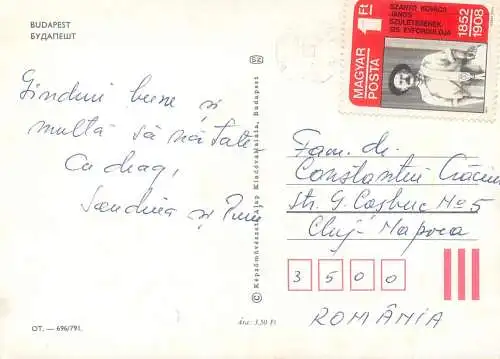 BUDAPEST
БУДАПЕШТ
Gînduri bune și
multă sănătate
Cu drag,
Sandina și Puiu
OT. — 696/791.
© Képzőművészeti Alap Kiadóvállalata, Budapest
ára: 3,50 Ft
1 Ft
MAGYAR
POSTA
SZÁNTÓ KOVÁCS
JÁNOS
SZÜLETÉSÉNEK
125. ÉVFORDULÓJA
1852
1908
Fam. dr.
Constantin Crăciun
str. G. Coșbuc No 5
Cluj-Napoca
3 5 0 0
ROMÂNIA